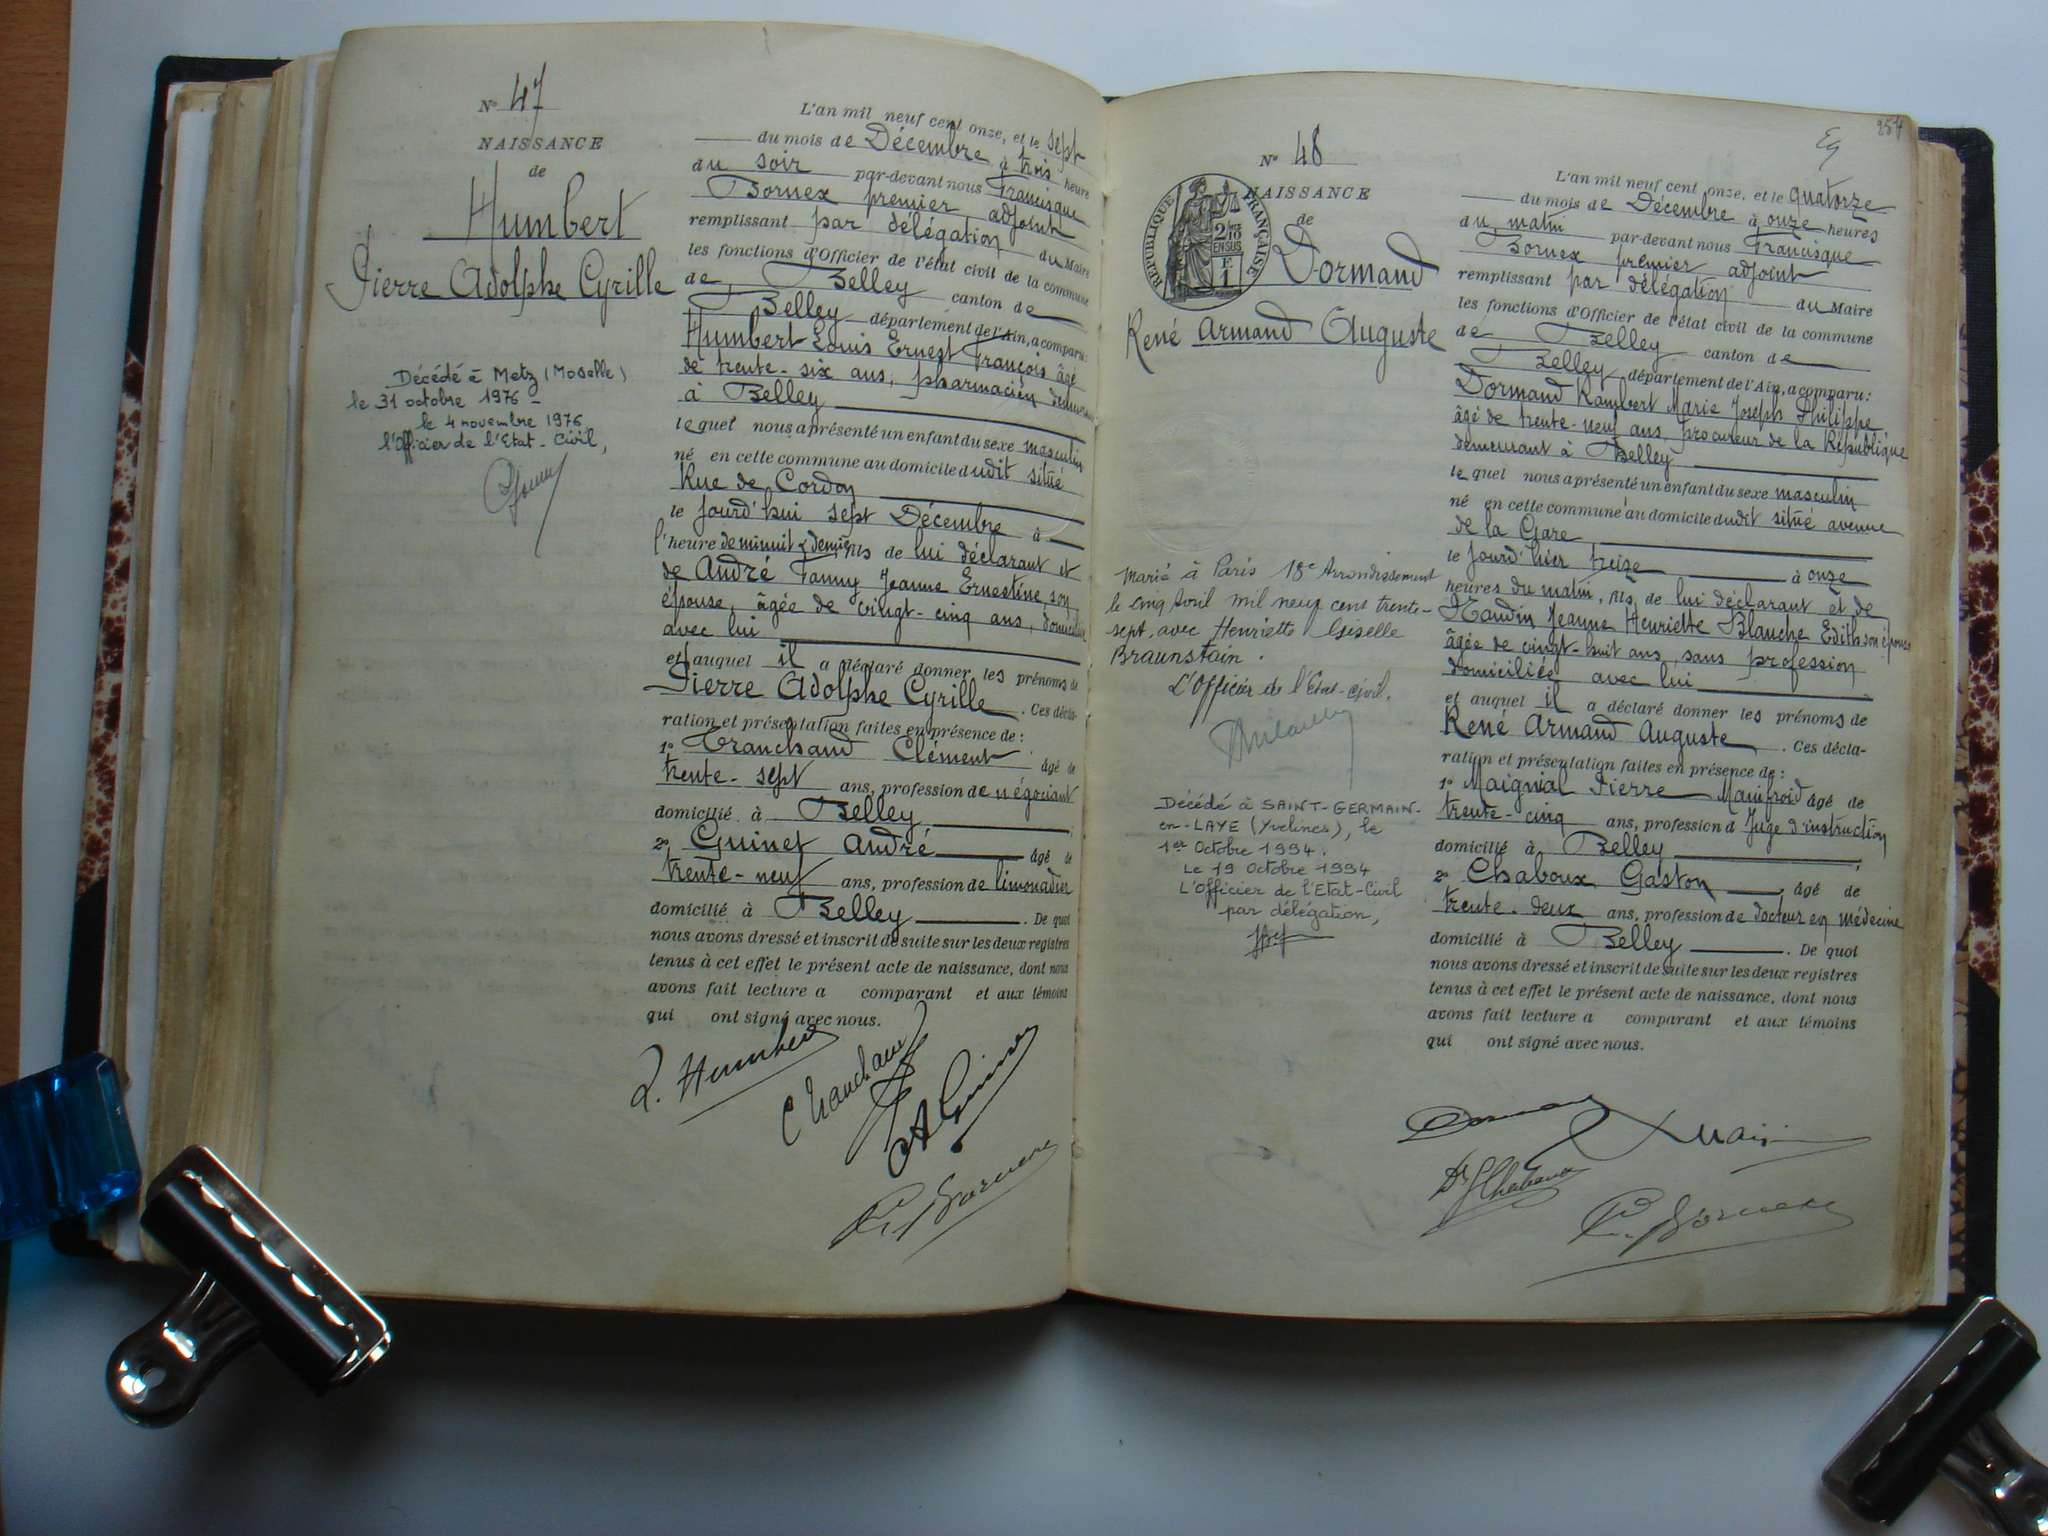 N° 47
NAISSANCE
de
Humbert
Pierre Adolphe Cyrille
Décédé à Metz (Moselle)
le 31 octobre 1976 -
le 4 novembre 1976
l'Officier de l'Etat-Civil,
L'an mil neuf cent onze, et le sept
du mois de Décembre à trois heure
du soir par-devant nous Francisque
Bornex premier adjoint
remplissant par délégation du Maire
les fonctions d'Officier de l'état civil de la commune
de Belley canton de
Belley département de l'Ain, a comparu:
Humbert Louis Ernest François âgé
de trente-six ans, pharmacien demeurant
à Belley
lequel nous a présenté un enfant du sexe masculin
né en cette commune au domicile dudit situé
Rue de Cordon
le jourd'hui sept Décembre à
l'heure de minuit & demie fils de lui déclarant et
de André Fanny Jeanne Ernestine son
épouse, âgée de vingt-cinq ans, domiciliée
avec lui
et auquel il a déclaré donner les prénoms de
Pierre Adolphe Cyrille . Ces décla-
ration et présentation faites en présence de :
1° Tranchand Clément âgé de
trente-sept ans, profession de négociant
domicilié à Belley
2° Guinet André âgé de
trente-neuf ans, profession de limonadier
domicilié à Belley . De quoi
nous avons dressé et inscrit de suite sur les deux registres
tenus à cet effet le présent acte de naissance, dont nous
avons fait lecture a comparant et aux témoins
qui ont signé avec nous.
L. Humbert
C Tranchand
A Guinet
F. Bornex
257
N° 48
NAISSANCE
de
RÉPUBLIQUE FRANÇAISE
2/10 EN SUS
Dormand
René Armand Auguste
Marié à Paris 18e Arrondissement
le cinq avril mil neuf cent trente-
sept, avec Henriette Giselle
Braunstain.
L'Officier de l'Etat-civil.
Décédé à SAINT-GERMAIN-
en-LAYE (Yvelines), le
1er Octobre 1994.
Le 19 Octobre 1994
L'Officier de l'Etat-Civil
par délégation,
L'an mil neuf cent onze, et le quatorze
du mois de Décembre à onze heures
du matin par-devant nous Francisque
Bornex premier adjoint
remplissant par délégation du Maire
les fonctions d'Officier de l'état civil de la commune
de Belley canton de
Belley département de l'Ain, a comparu:
Dormand Rambert Marie Joseph Philippe
âgé de trente-neuf ans, procureur de la République
demeurant à Belley
lequel nous a présenté un enfant du sexe masculin
né en cette commune au domicile dudit situé avenue
de la Gare
le jourd'hier treize à onze
heures du matin, fils de lui déclarant et de
Naudin Jeanne Henriette Blanche Edith son épouse
âgée de vingt-huit ans, sans profession
domiciliée avec lui
et auquel il a déclaré donner les prénoms de
René Armand Auguste . Ces décla-
ration et présentation faites en présence de :
1° Maignial Pierre Mainfroid âgé de
trente-cinq ans, profession d Juge d'instruction
domicilié à Belley
2° Chaboux Gaston âgé de
trente-deux ans, profession de docteur en médecine
domicilié à Belley . De quoi
nous avons dressé et inscrit de suite sur les deux registres
tenus à cet effet le présent acte de naissance, dont nous
avons fait lecture a comparant et aux témoins
qui ont signé avec nous.
Dr G Chaboux
F. Bornex